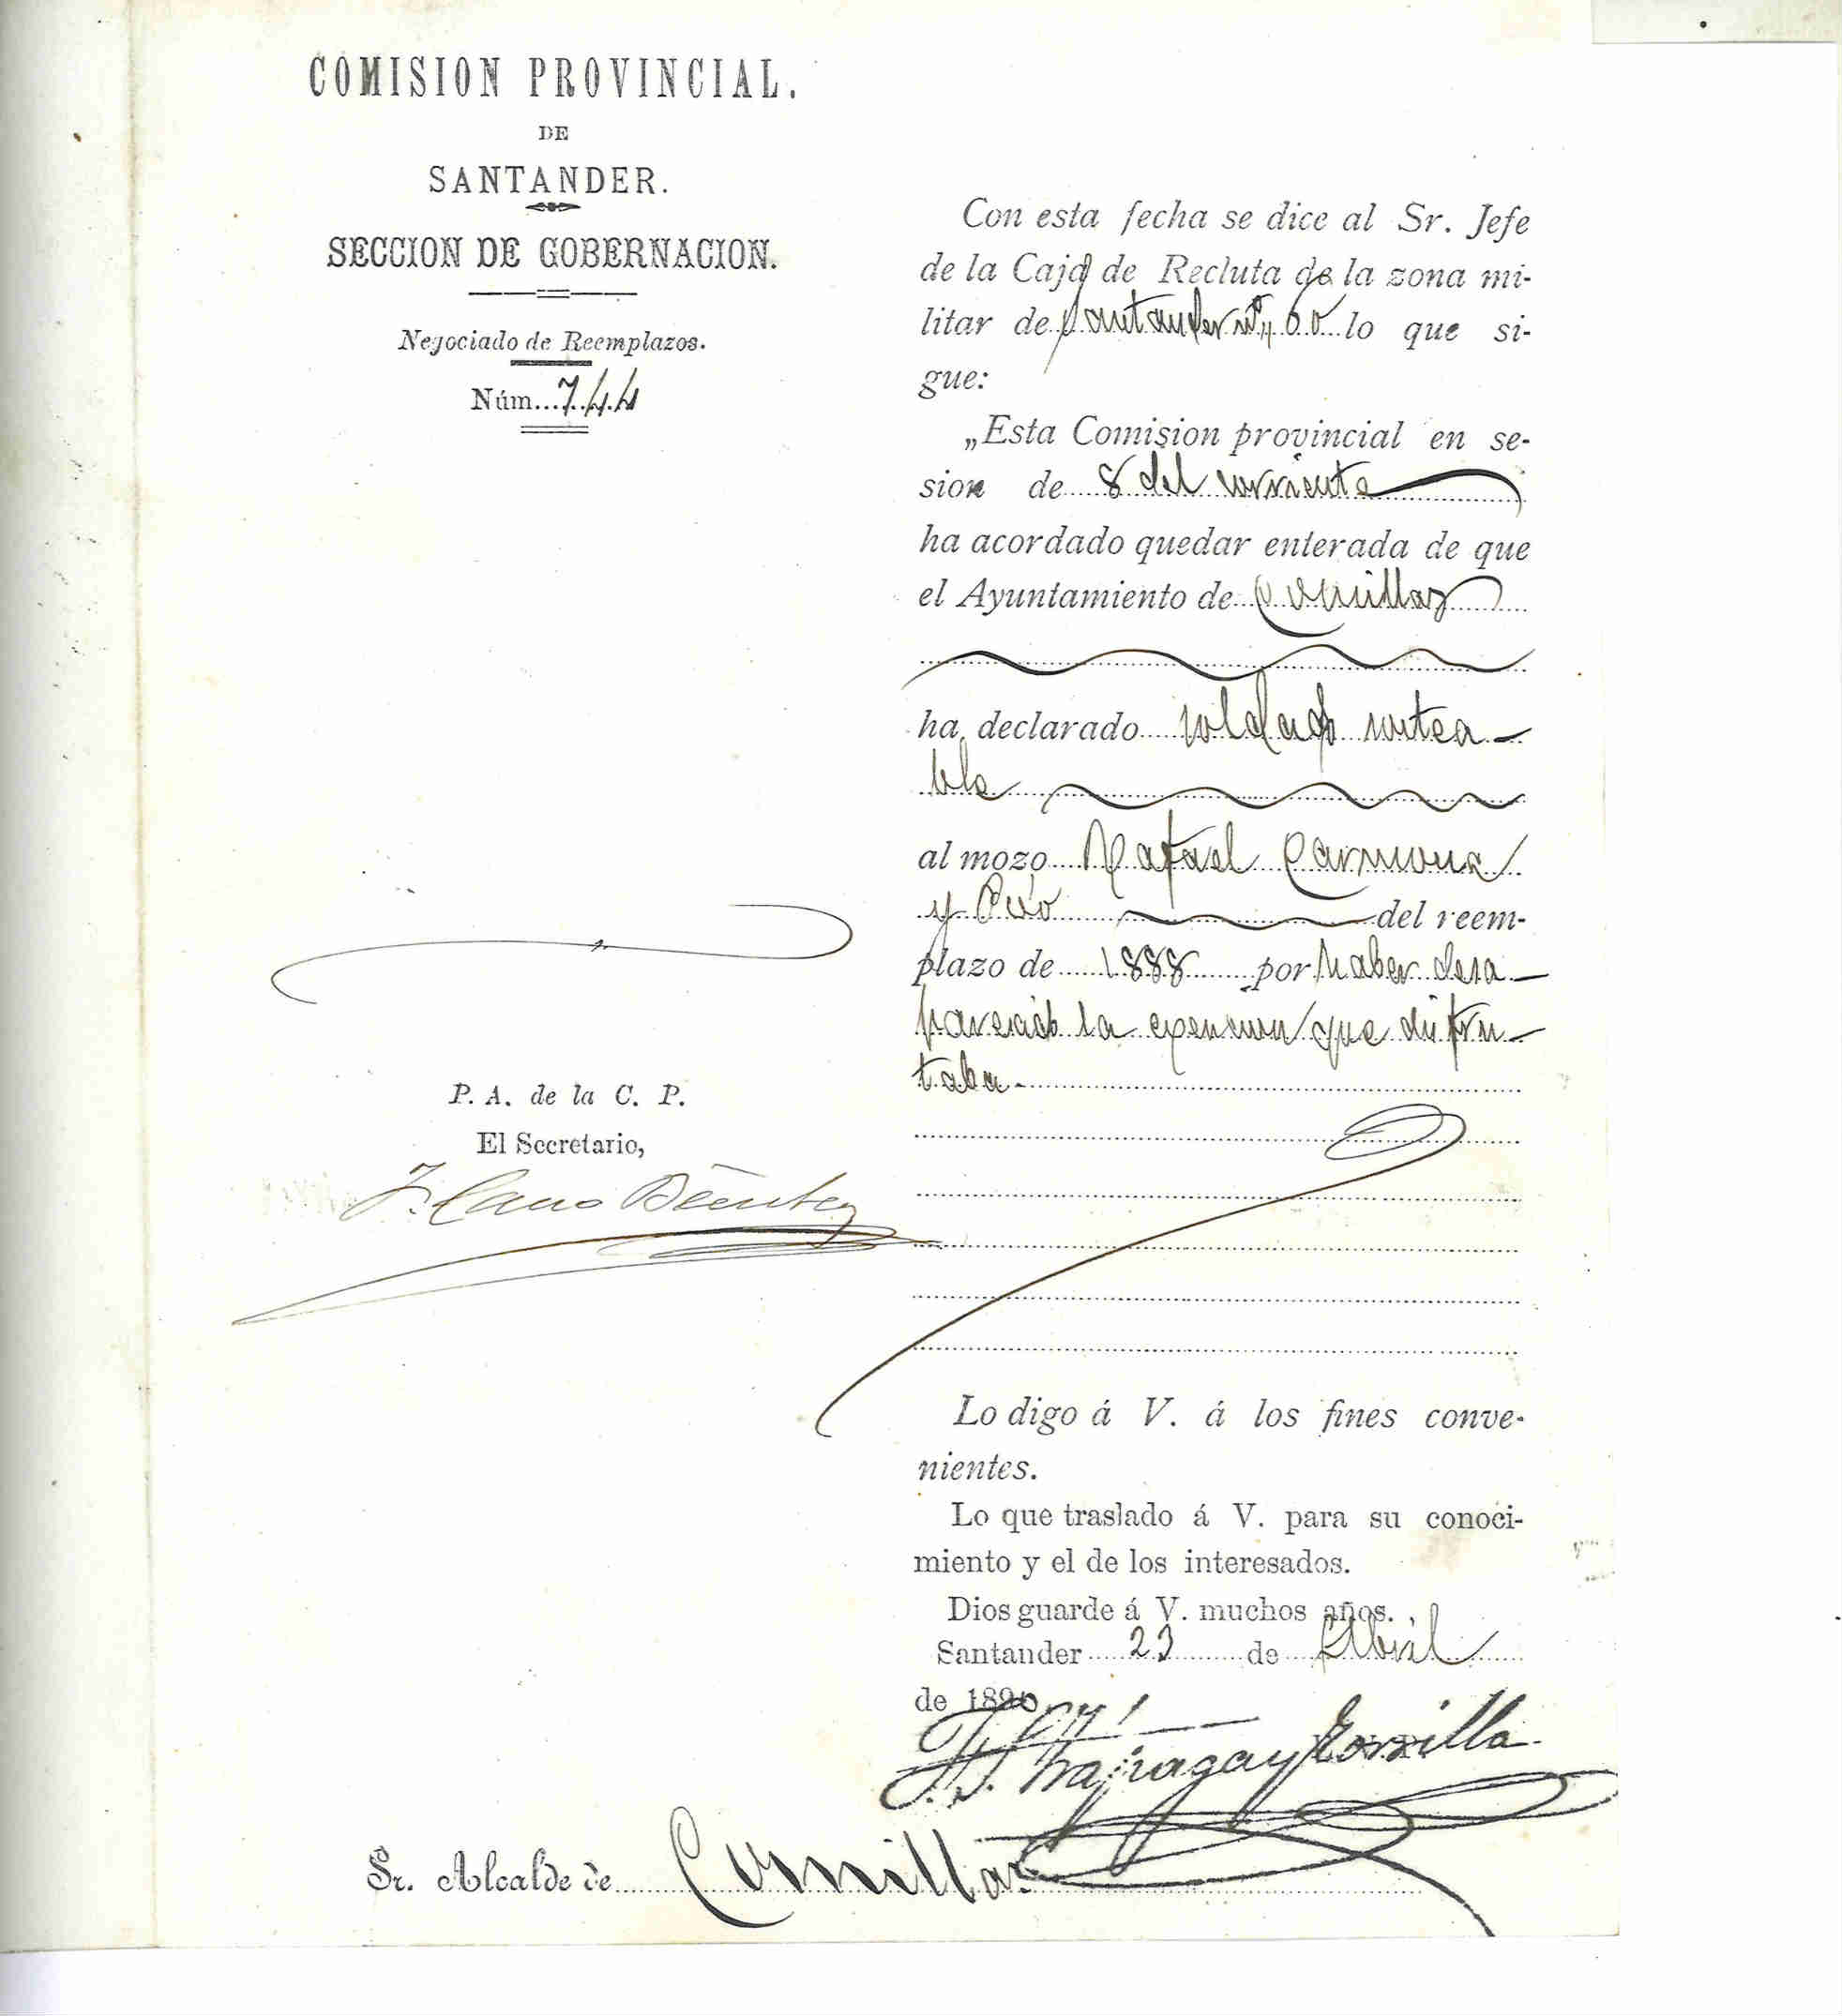 COMISION PROVINCIAL.
DE
SANTANDER.
SECCION DE GOBERNACION.
Negociado de Reemplazos.
Núm. 744
Con esta fecha se dice al Sr. Jefe
de la Caja de Recluta de la zona mi-
litar de Santander nº 60 lo que si-
gue:
„Esta Comision provincial en se-
sion de 8 del corriente
ha acordado quedar enterada de que
el Ayuntamiento de Comillas
ha declarado soldado sortea-
ble
al mozo Rafael Carmona
y del reem-
plazo de 1888 por haber desa-
parecido la exencion que disfru-
taba.
P. A. de la C. P.
El Secretario,
Lo digo á V. á los fines conve-
nientes.
Lo que traslado á V. para su conoci-
miento y el de los interesados.
Dios guarde á V. muchos años.
Santander 23 de Abril
de 1890
Sr. Alcalde de Comillas